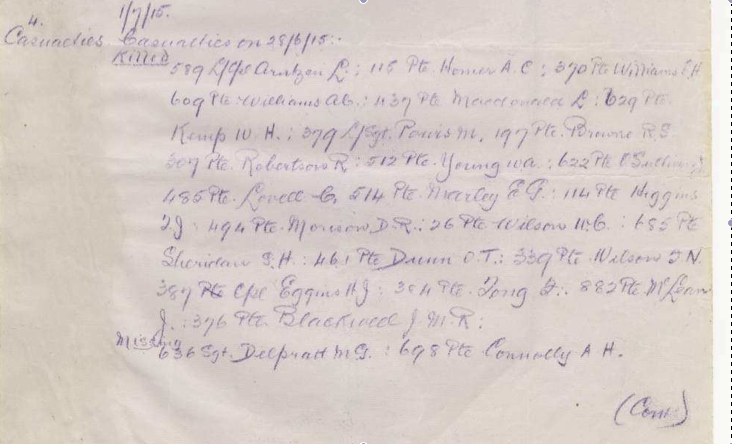 4. 1/7/15.
Casualties Casualties on 28/6/15:-
Killed
589 L/Cpl Arntzen L.: 115 Pte. Homer A.C: 370 Pte Williams F.H
609 Pte Williams A.C.: 437 Pte Macdonald L: 629 Pte.
Kemp W.H.: 379 L/Sgt. Powis M, 197 Pte. Browne R.S.
307 Pte. Robertson R: 512 Pte. Young W.A.: 622 Pte O'Sullivan
485 Pte. Lovell C. 514 Pte. Marley E.G.: 114 Pte Higgins
J: 494 Pte. Morison D.R.: 26 Pte Wilson H.C.: 685 Pte
Sheridan S.H.: 461 Pte Dunn O.T.: 339 Pte. Wilson J.N.
387 Pte Cpl Eggins H.J: 304 Pte. Tong 882 Pte. McLean
J.: 376 Pte. Blackwell J.M.R:
Missing
636 Sgt. Delpratt M.G.: 698 Pte Connolly A H.
(Con.)